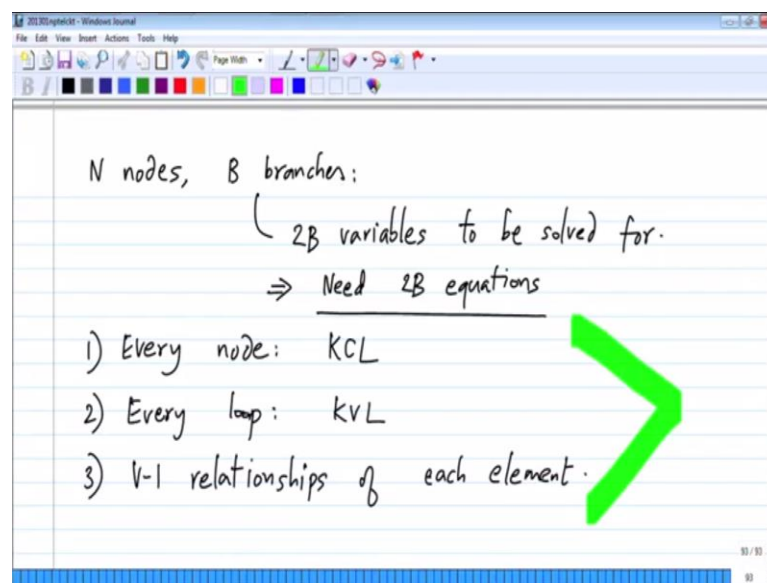 201301nptelckt - Windows Journal
File Edit View Insert Actions Tools Help
Page Width
B I
N nodes, B branches:
2B variables to be solved for.
⇒ Need 2B equations
1) Every node: KCL
2) Every loop: KVL
3) V-I relationships of each element.
93 / 93
93